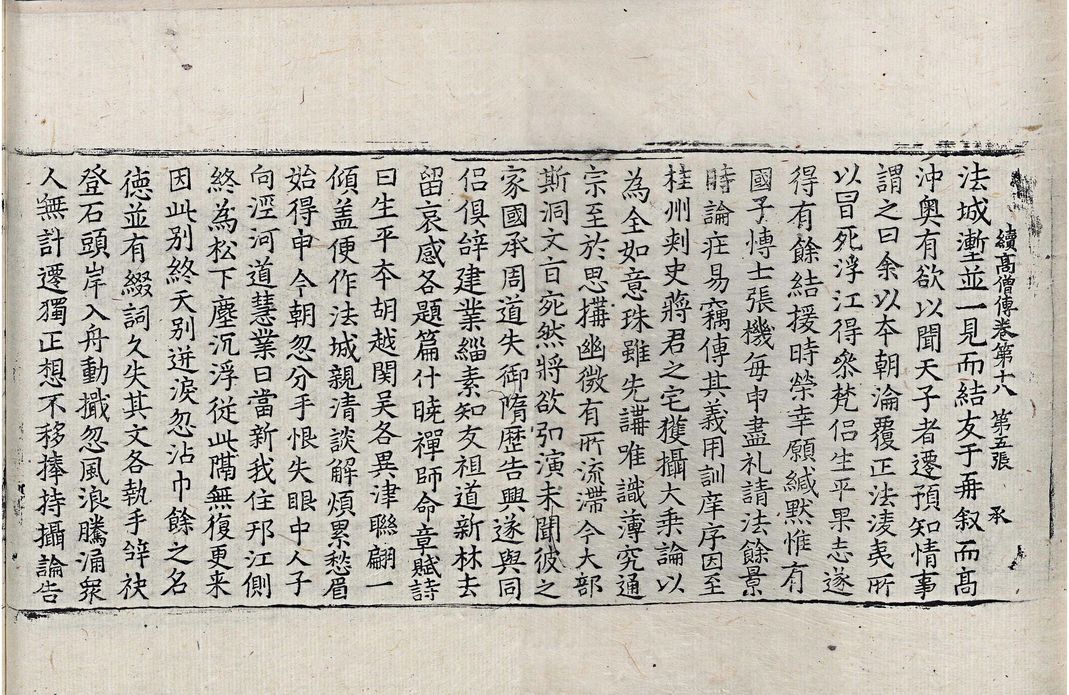 續高僧傳卷第十八 第五張 承
法城壍並一見而結友于再叙而高
沖奥有欲以聞天子者遷預知情事
謂之曰余以本朝淪覆正法淩夷所
以冒死浮江得叅梵侣生平果志遂
得有餘結援時榮幸願緘默惟有
國子慱士張機每申盡礼請法餘景
時論庄易竊傳其義用訓庠序因至
桂州刾史蔣君之宅獲攝大乗論以
為全如意珠雖先講唯識薄究通
宗至於思搆幽微有所流滯今大部
斯洞文旨宛然將欲弘演未聞彼之
家國承周道失御隋歷告興遂與同
侣俱辝建業緇素知友祖道新林去
留哀感各題篇什曉禪師命章賦詩
曰生平本胡越関吴各異津聮翩一
傾盖便作法城親清談解煩累愁眉
始得申今朝忽分手恨失眼中人子
向涇河道慧業日當新我住邗江側
終為松下塵沉浮從此隔無復更来
因此别終天别迸淚忽沾巾餘之名
徳並有綴詞久失其文各執手辝訣
登石頭岸入舟動檝忽風浪騰涌衆
人無計遷獨正想不移捧持攝論告